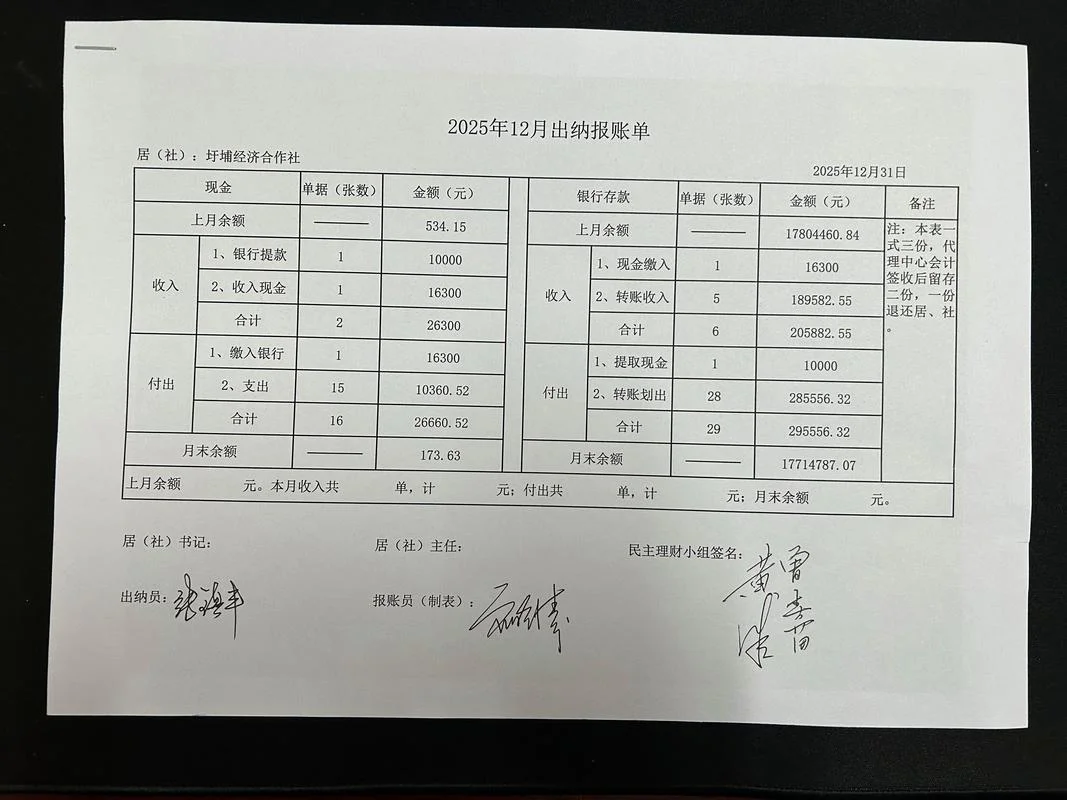 2025年12月出纳报账单
居（社）：圩埔经济合作社
2025年12月31日
现金 单据（张数） 金额（元） 银行存款 单据（张数） 金额（元） 备注
上月余额 —— 534.15 上月余额 —— 17804460.84
收入 1、银行提款 1 10000 收入 1、现金缴入 1 16300
2、收入现金 1 16300 2、转账收入 5 189582.55
合计 2 26300 合计 6 205882.55
付出 1、缴入银行 1 16300 付出 1、提取现金 1 10000
2、支出 15 10360.52 2、转账划出 28 285556.32
合计 16 26660.52 合计 29 295556.32
月末余额 —— 173.63 月末余额 —— 17714787.07
注：本表一
式三份，代
理中心会计
签收后留存
二份，一份
退还居、社
。
上月余额 元。本月收入共 单，计 元；付出共 单，计 元；月末余额 元。
居（社）书记： 居（社）主任： 民主理财小组签名：
出纳员： 报账员（制表）：